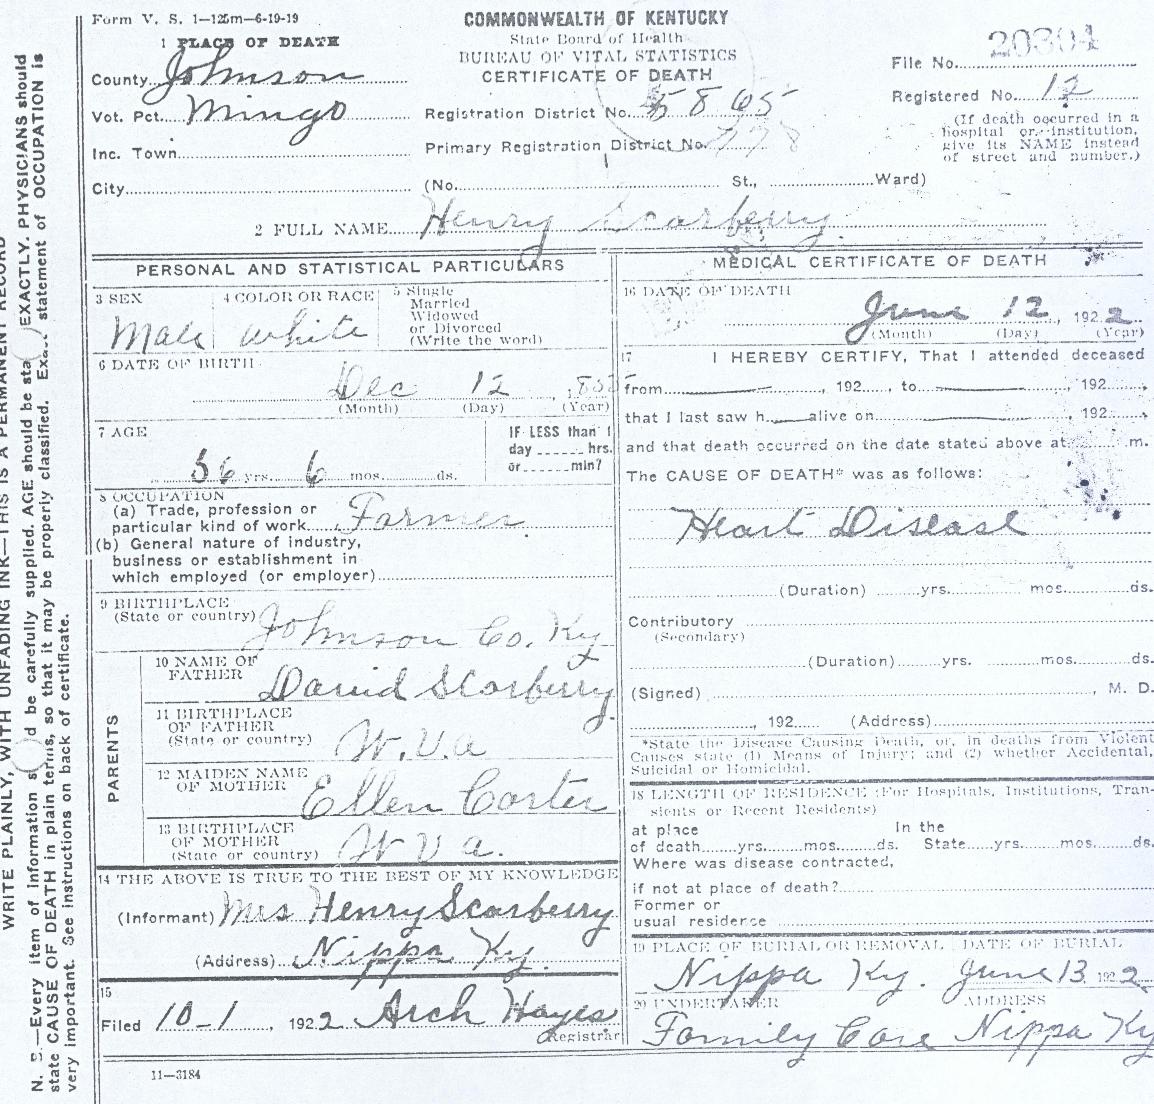 Form V. S. 1—125m—6-19-19
COMMONWEALTH OF KENTUCKY
State Board of Health
BUREAU OF VITAL STATISTICS
CERTIFICATE OF DEATH
File No. 20304
Registered No. 12
(If death occurred in a hospital or institution, give its NAME instead of street and number.)
1 PLACE OF DEATH
County Johnson
Vot. Pct. Mingo
Inc. Town
City
Registration District No. 5865
Primary Registration District No. 778
(No. St., Ward)
2 FULL NAME Henry Scarberry
PERSONAL AND STATISTICAL PARTICULARS
3 SEX
Male
4 COLOR OR RACE
white
5 Single
Married
Widowed
or Divorced
(Write the word)
6 DATE OF BIRTH
Dec 12
(Month) (Day) (Year)
7 AGE
yrs. 6 mos. ds.
IF LESS than 1
day hrs.
or min?
8 OCCUPATION
(a) Trade, profession or
particular kind of work Farmer
(b) General nature of industry,
business or establishment in
which employed (or employer)
9 BIRTHPLACE
(State or country) Johnson Co. Ky
PARENTS
10 NAME OF
FATHER David Scarberry
11 BIRTHPLACE
OF FATHER
(State or country) W. Va
12 MAIDEN NAME
OF MOTHER Ellen Carter
13 BIRTHPLACE
OF MOTHER
(State or country) W Va.
14 THE ABOVE IS TRUE TO THE BEST OF MY KNOWLEDGE
(Informant) Mrs Henry Scarberry
(Address) Nippa Ky.
15
Filed 10-1, 1922 Arch Hayes
Registrar
11—3184
MEDICAL CERTIFICATE OF DEATH
16 DATE OF DEATH
June 12, 1922
(Month) (Day) (Year)
17 I HEREBY CERTIFY, That I attended deceased
from , 192 , to , 192 ,
that I last saw h alive on , 192 ,
and that death occurred on the date stated above at m.
The CAUSE OF DEATH* was as follows:
Heart Disease
(Duration) yrs. mos. ds.
Contributory
(Secondary)
(Duration) yrs. mos. ds.
(Signed) , M. D.
, 192 (Address)
*State the Disease Causing Death, or, in deaths from Violent
Causes state (1) Means of Injury; and (2) whether Accidental,
Suicidal or Homicidal.
18 LENGTH OF RESIDENCE (For Hospitals, Institutions, Tran-
sients or Recent Residents)
at place In the
of death yrs. mos. ds. State yrs. mos. ds.
Where was disease contracted,
if not at place of death?
Former or
usual residence
19 PLACE OF BURIAL OR REMOVAL DATE OF BURIAL
Nippa Ky. June 13 1922
20 UNDERTAKER ADDRESS
Family Care Nippa Ky
WRITE PLAINLY, WITH UNFADING INK—THIS IS A PERMANENT RECORD
N. B.—Every item of information be carefully supplied. AGE should be EXACTLY. PHYSICIANS should
state CAUSE OF DEATH in plain terms, so that it may be properly classified. statement of OCCUPATION is
very important. See instructions on back of certificate.